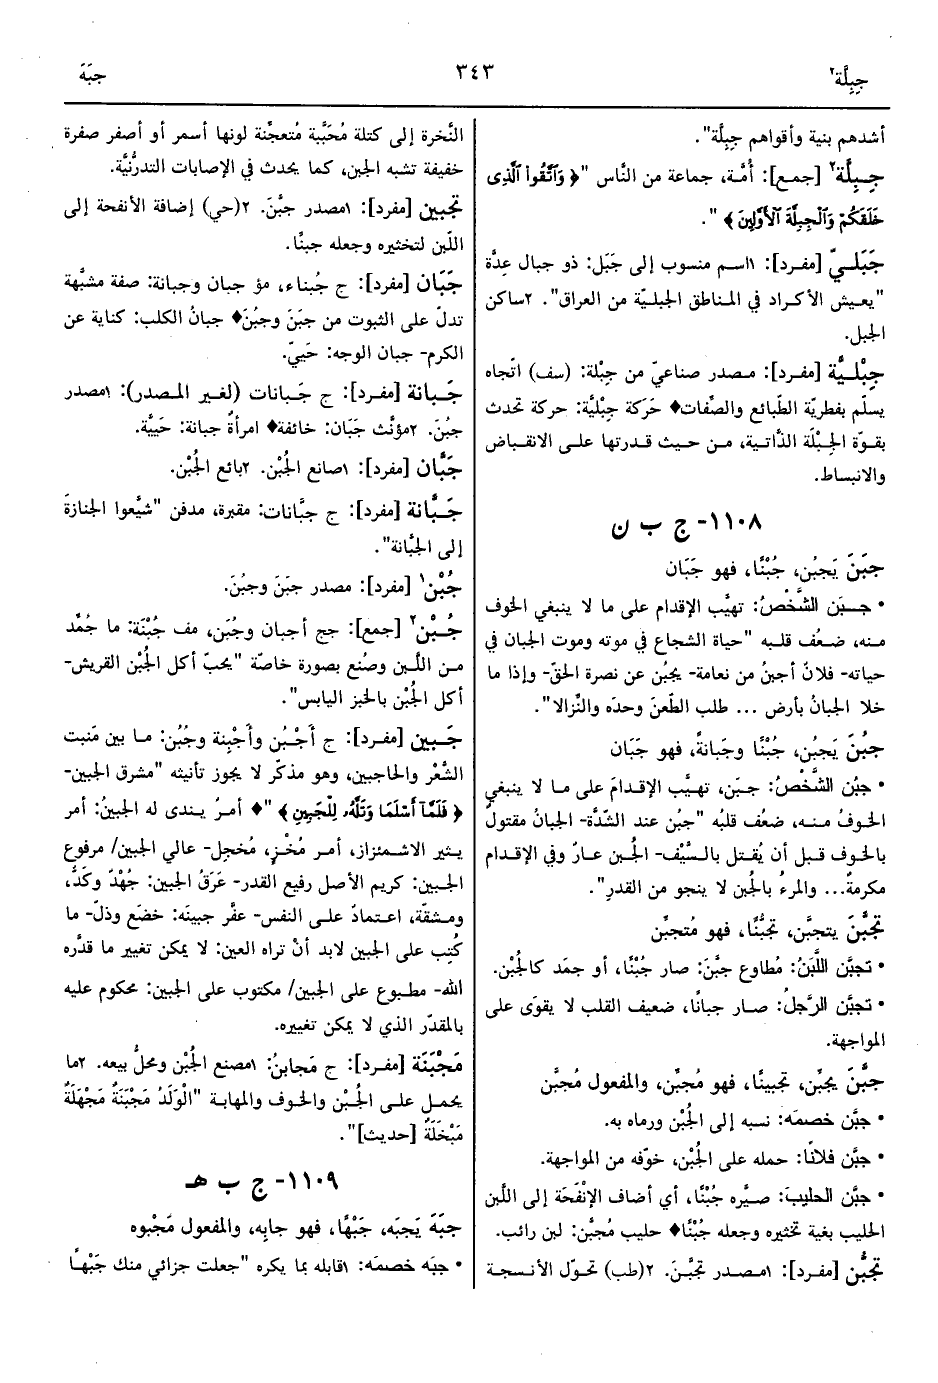 جِبِلَّة٢
٣٤٣
جبَهَ
أشدهم بنية وأقواهم جِبِلَّة".
جِـبِلَّة٢ [جمع]: أُمَّة، جماعة من النَّاس "﴿ وَٱتَّقُواْ ٱلَّذِى
خَلَقَكُمْ وَٱلْجِبِلَّةَ ٱلْأَوَّلِينَ ﴾ ".
جَبَلـيّ [مفـرد]: ١اسـم منسوب إلى جَبَل: ذو جبال عِدَّة
"يعـيش الأكـراد في المـناطق الجبلـيّة من العراق". ٢ساكن
الجبل.
جِبْلـيَّة [مفرد]: مصدر صناعيّ من جِبْلة: (سف) اتّجاه
يسلّم بفطريّة الطّبائع والصِّفات♦ حَرَكة جِبْليَّة: حركة تحدث
بقـوّة الجِـبْلَة الذَّاتـية، مـن حـيث قـدرتها علـى الانقـباض
والانبساط.
١١٠٨- ج ب ن
جبَنَ يَجبُن، جُبْنًا، فهو جَبَان
• جـبَن الشَّخْصُ: تهيَّب الإقدام على ما لا ينبغي الخوف
مـنه، ضـعُف قلـبه "حياة الشجاع في موته وموت الجبان في
حياته- فلانٌ أجبنُ من نعامة- يجبُن عن نصرة الحقّ- وإذا ما
خلا الجبانُ بأرض ... طلب الطّعنَ وحدَه والنِّزالا".
جبُنَ يَجبُن، جُبْنًا وجَبانةً، فهو جَبَان
• جبُن الشَّخْصُ: جـبَن، تهـيَّب الإقـدامَ على مـا لا ينبغي
الخـوفُ مـنـه، ضعُف قلبُه "جبُن عند الشدَّة- الجبانُ مقتولٌ
بالخـوف قـبل أن يُقـتل بالـسَّيْف- الجُـبن عـارٌ وفي الإقـدام
مكرمةٌ... والمرءُ بالجُبن لا ينجو من القدرِ".
تجبَّنَ يتجبَّن، تجبُّنًا، فهو مُتجبِّن
• تجبَّن اللَّبَنُ: مُطاوع جبَّنَ: صار جُبْنًا، أو جمَد كالجُبْن.
• تجبَّن الرَّجلُ: صـار جبانًا، ضعيف القلب لا يقوَى على
المواجهة.
جبَّنَ يجبِّن، تجبينًا، فهو مُجبِّن، والمفعول مُجبَّن
• جبَّن خصمَه: نسبه إلى الجُبْن ورماه به.
• جبَّن فلانًا: حمله على الجُبْن، خوّفه من المواجهة.
• جبَّن الحليبَ: صيَّره جُبْنًا، أي أضاف الإنْفَحة إلى اللّبن
الحليب بغية تخثيره وجعله جُبْنًا♦ حليب مُجبَّن: لبن رائب.
تجبُّن [مفـرد]: ١مـصدر تجبَّـنَ. ٢(طب) تحوّل الأنـسجـة
النَّخرة إلى كتلة مُحَبَّبة مُتعجّنة لونها أسمر أو أصفر صفرة
خفيفة تشبه الجبن، كما يحدث في الإصابات التدرُّنيَّة.
تجبين [مفرد]: ١مصدر جبَّنَ. ٢(حي) إضافة الأنفحة إلى
اللّبن لتخثيره وجعله جبنًا.
جَبَان [مفرد]: ج جُبناء، مؤ جبان وجبانة: صفة مشبَّهة
تدلّ على الثبوت من جبَنَ وجبُنَ♦ جبانُ الكلب: كناية عن
الكرم- جبان الوجه: حَييّ.
جَـبانة [مفـرد]: ج جَـبانات (لغـير المـصدر): ١مصدر
جبُنَ. ٢مؤنَّث جَبَان: خائفة♦ امرأةٌ جبانة: حَييَّة.
جَبَّان [مفرد]: ١صانع الجُبْن. ٢بائع الجُبْن.
جَـبَّانة [مفرد]: ج جبَّانات: مقبرة، مدفن "شيَّعوا الجنازةَ
إلى الجبَّانة".
جُبْن١ [مفرد]: مصدر جبَنَ وجبُنَ.
جُـبْن٢ [جمع]: جج أجبان وجُبَن، مف جُبْنَة: ما جُمِّد
مـن اللّـبن وصُنع بصورة خاصّة "يحبّ أكل الجُبْن القريش-
أكل الجُبْن بالخبز اليابس".
جَـبين [مفـرد]: ج أجْـبُن وأجْبِنة وجُبُن: مـا بين مَنبت
الشَّعْر والحاجبين، وهو مذكّر لا يجوز تأنيثه "مشرق الجبين-
﴿ فَلَمَّآ أَسْلَمَا وَتَلَّهُۥ لِلْجَبِينِ ﴾ "♦ أمـرٌ يـندى له الجبينُ: أمر
يـثير الاشـمئزاز، أمـر مُخْـزٍ، مُخجل- عالي الجبين/ مرفوع
الجبـين: كـريم الأصل رفيع القدر- عَرَقُ الجبين: جُهْدٌ وكَدٌّ،
ومـشقّة، اعـتمادٌ علـى النفس- عفّر جبينَه: خضَع وذلّ- ما
كُتِب على الجبين لابد أنْ تراه العين: لا يمكن تغيير ما قدَّره
الله- مطـبوع على الجبين/ مكتوب على الجبين: محكوم عليه
بالمقدّر الذي لا يمكن تغييره.
مَجْبَنَة [مفـرد]: ج مَجابنُ: ١مصنع الجُبْن ومحلُّ بيعه. ٢ما
يحمـل علـى الجُـبْن والخـوف والمهابـة "الْوَلَدُ مَجْبَنَةٌ مَجْهَلَةٌ
مَبْخَلَةٌ [حديث]".
١١٠٩- ج ب هـ
جبَهَ يَجبَه، جَبْهًا، فهو جابِه، والمفعول مَجْبوه
• جبَه خصمَه: ١قابله بما يكره "جعلت جزائي منك جَبْهـاً